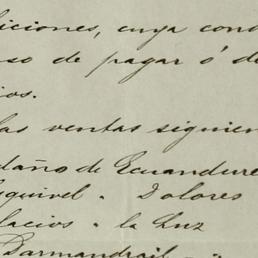 iciones, cuya cond
so de pagar ó de
ios.
las ventas siguien
daño de Ecuandure
squivel. Dolores
lacios. la Luz
Parmandrail